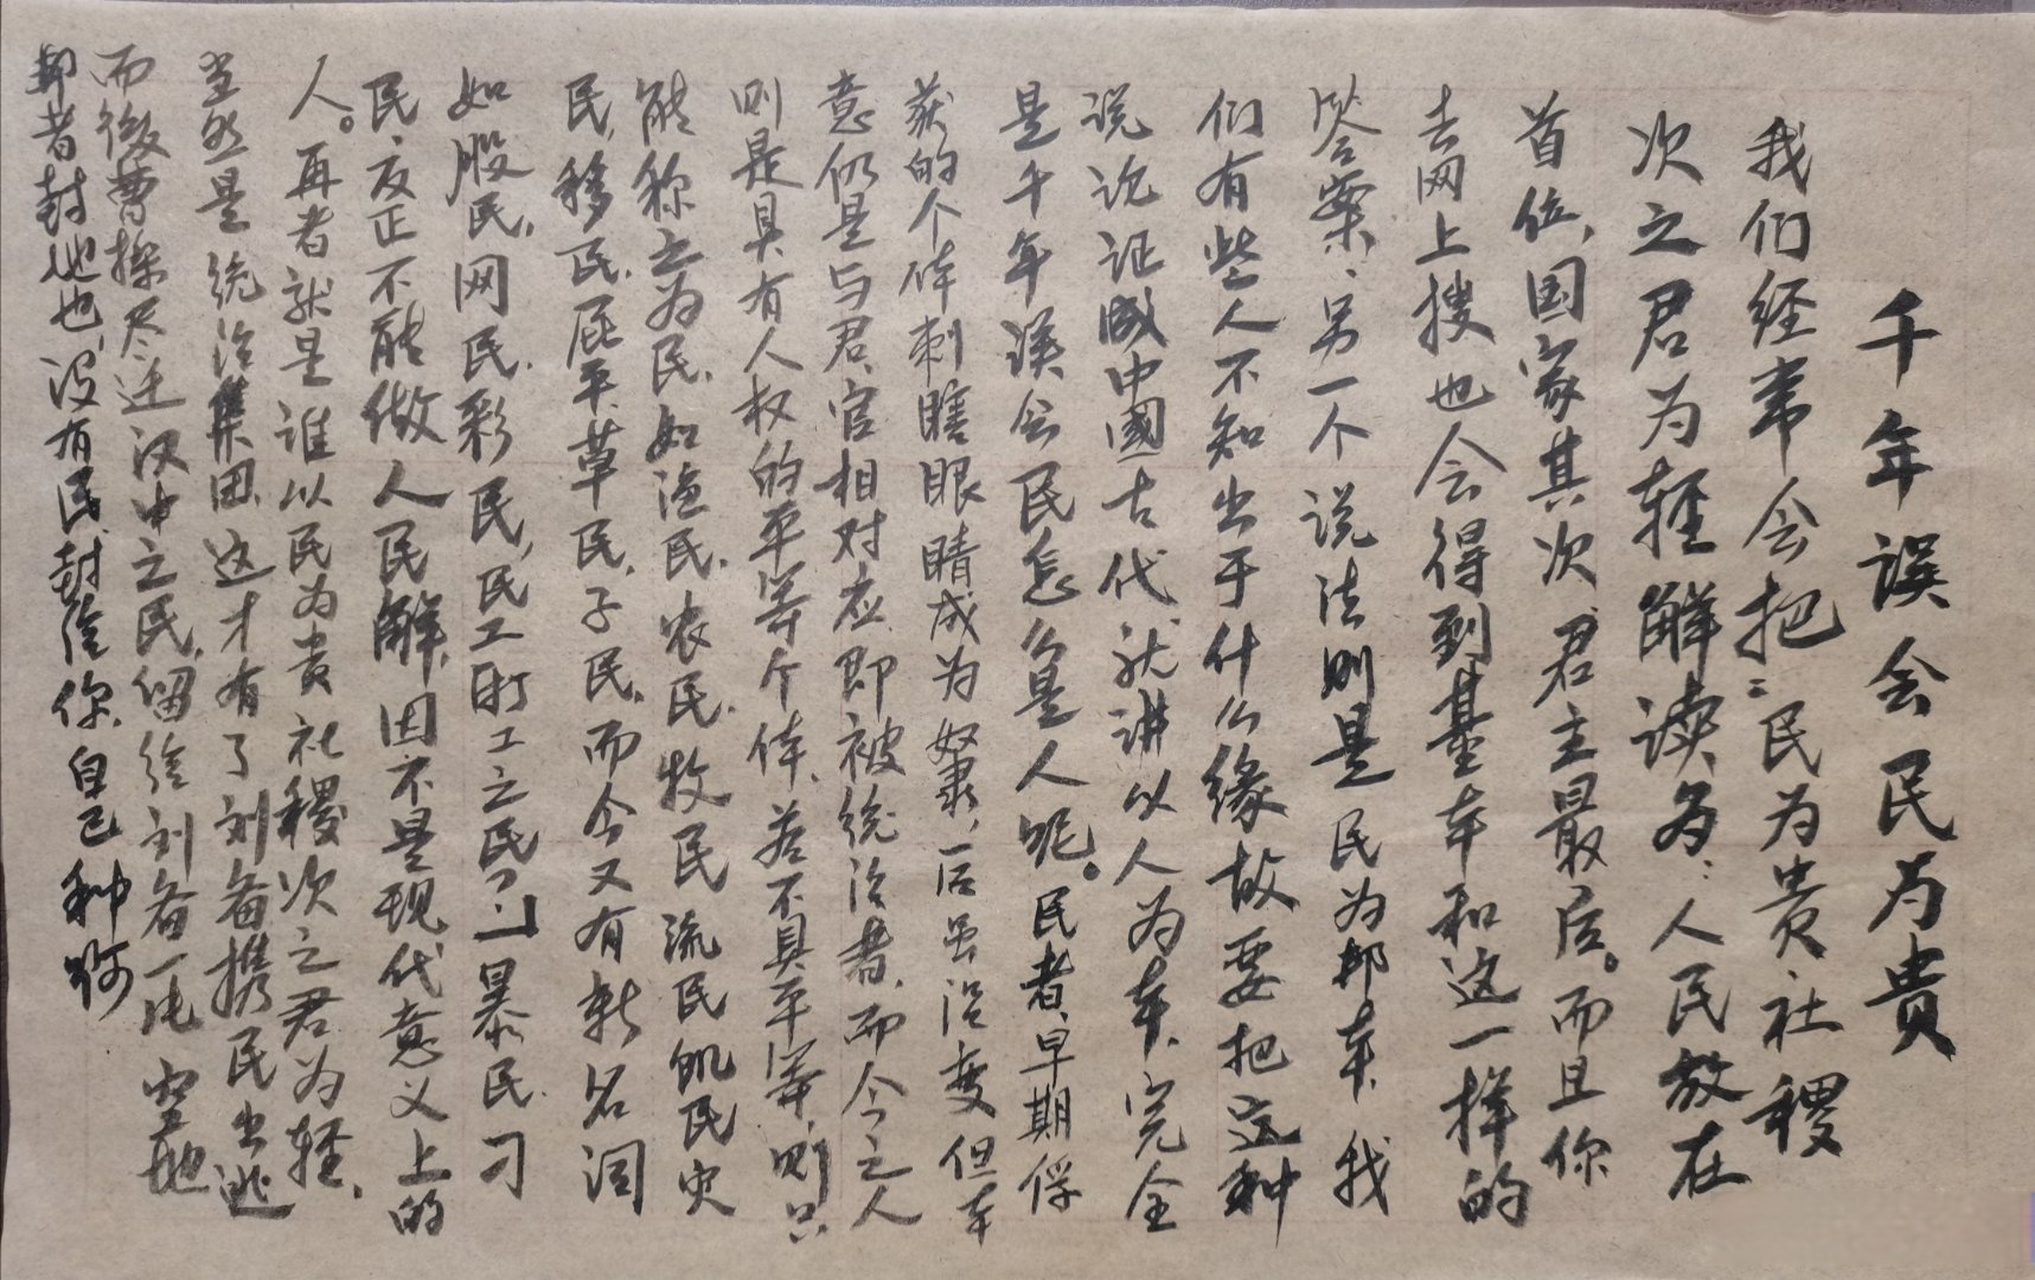 千年误会民为贵
我们经常会把:民为贵社稷
次之君为轻解读为:人民放在
首位,国家其次,君主最后。而且你
去网上搜也会得到基本和这一样的
答案,另一个说法则是民为邦本,我
们有些人不知出于什么缘故要把这种
说论证成中國古代就讲以人为本,完全
是千年误会民怎么是人呢。民者,早期俘
获的个体刺瞎眼睛成为奴隶,后虽沿变但本
意仍是与君、官相对应,即被统治者,而今之人
则是具有人权的平等个体,若不具平等,则只
能称之为民,如渔民,农民,牧民流民饥民灾
民,移民,屁平草民,子民,而今又有新名词
如股民,网民,彩民,民工 打工之民 暴民刁
民,反正不能做人民解,因不是现代意义上的
人。再者就是谁以民为贵社稷次之君为轻,
当然是统治集团,这才有了刘备携民出逃
而後曹操尽迁汉中之民,留给刘备一片空地
邦者封地也,没有民,封给你,自己种吗